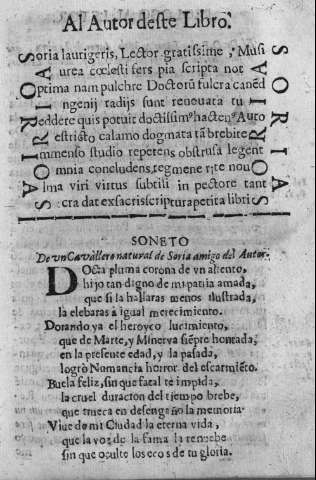 Al Autor deste Libro.
Soria laurigeris, Lector gratissime, Musi
urea cœlesti fers pia scripta not
ptima nam pulchre Doctorũ fulcra canẽd
ngenij radijs sunt renouata tu
eddere quis potuit doctissimº hactenº Auro
estricto calamo dogmata tã brebite
mmenso studio repetens obstrusa legent
omnia concludens, tegmene rite nou
lma viri virtus subtili in pectore tant
cra dat ex sacris scriptura petita libri
SORIA
SORIA
SORIA
SONETO
De vn Cavallero natural de Soria amigo del Autor.
DOcta pluma corona de vn aliento,
hijo tan digno de mi patria amada,
que si la hallaras menos ilustrada,
la elebaras à igual merecimiento.
Dorando ya el heroyco lucimiento,
que de Marte, y Minerva siẽpre honrada,
en la presente edad, y la pasada,
logrò Numancia horror del escarmiẽto.
Buela feliz, sin que fatal te impida,
la cruel duracion del tiempo brebe,
que trueca en desengaño la memoria.
Viue de mi Ciudad la eterna vida,
que la voz de la fama la renuebe
sin que oculte los ecos de tu gloria.